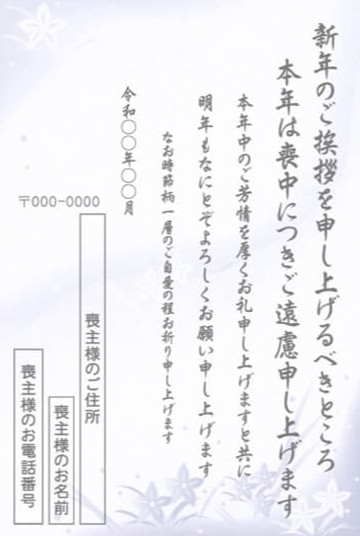 新年のご挨拶を申し上げるべきところ
本年は喪中につきご遠慮申し上げます
本年中のご芳情を厚くお礼申し上げますと共に
明年もなにとぞよろしくお願い申し上げます
なお時節柄一層のご自愛の程お祈り申し上げます
令和〇〇年〇〇月
〒000-0000
喪主様のご住所
喪主様のお名前
喪主様のお電話番号